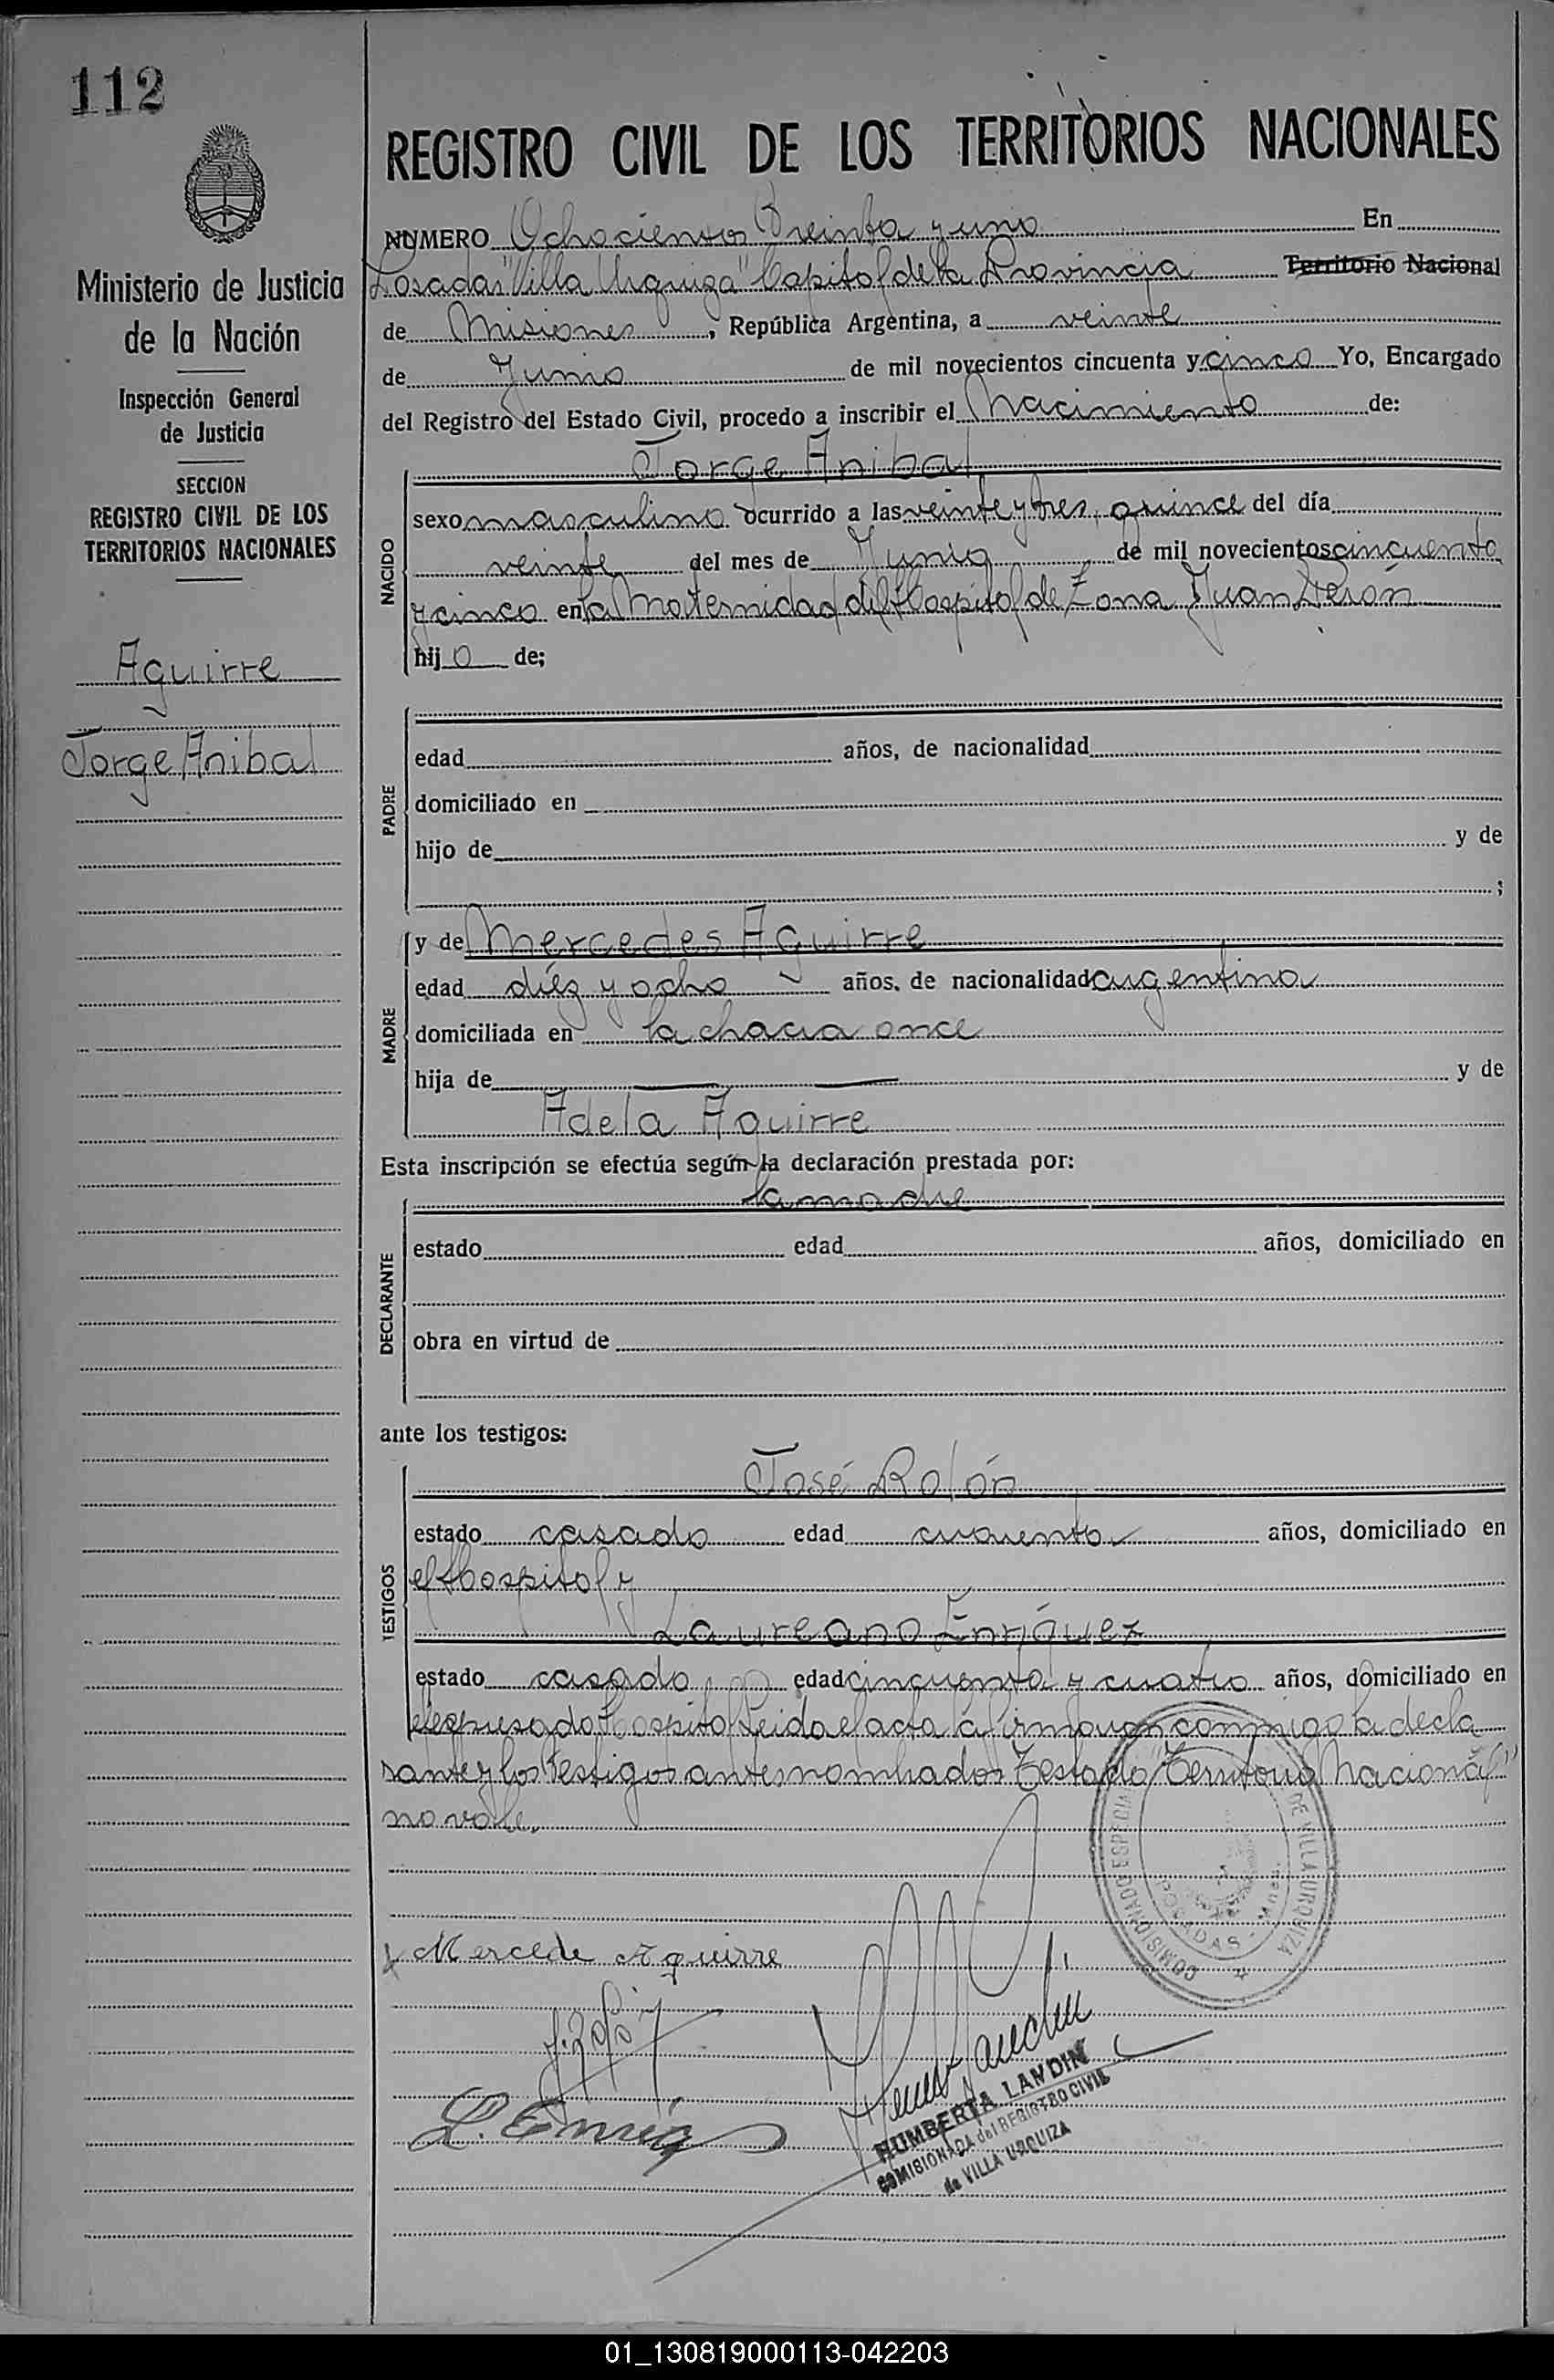 112
Ministerio de Justicia
de la Nación
Inspección General
de Justicia
SECCION
REGISTRO CIVIL DE LOS
TERRITORIOS NACIONALES
Aguirre
Jorge Anibal
REGISTRO CIVIL DE LOS TERRITORIOS NACIONALES
NUMERO Ochocientos Treinta y uno En
Posadas "Villa Urquiza" Capital de la Provincia Territorio Nacional
de Misiones, República Argentina, a veinte
de Junio de mil novecientos cincuenta y cinco Yo, Encargado
del Registro del Estado Civil, procedo a inscribir el Nacimiento de:
NACIDO
Jorge Anibal
sexo masculino ocurrido a las veinte y tres, quince del día
veinte del mes de Junio de mil novecientos cincuenta
y cinco en la Maternidad del Hospital de Zona Juan Perón
hijo de;
PADRE
edad años, de nacionalidad
domiciliado en
hijo de y de
;
MADRE
y de Mercedes Aguirre
edad diéz y ocho años, de nacionalidad argentina
domiciliada en la chacra once
hija de — — y de
Adela Aguirre
Esta inscripción se efectúa según la declaración prestada por:
DECLARANTE
la madre
estado edad años, domiciliado en
obra en virtud de
ante los testigos:
TESTIGOS
José Rolón
estado casado edad cuarenta años, domiciliado en
el Hospital y
Laureano Enríquez
estado casado edad cincuenta y cuatro años, domiciliado en
el expresado Hospital Leida el acta la firmaron conmigo la decla
rante y los testigos antes nombrados Testado "Territorio Nacional"
no vale.
COMISIONADO ESPECIAL DE VILLA URQUIZA
POSADAS - Mnes.
Mercede Aguirre
J. Rolón
L. Enriq
HUMBERTA LANDIN
COMISIONADA del REGISTRO CIVIL
de VILLA URQUIZA
01_130819000113-042203